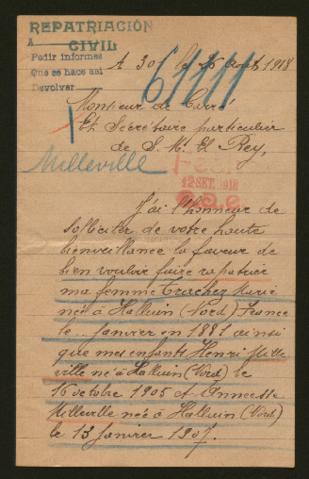 REPATRIACIÓN
CIVIL
Pedir informes
Que se hace así
Devolver
A 30, le 16 Août 1918
61111
Monsieur de
Et Secrétaire particulier
de S. M. El Rey,
Milleville
12 SET. 1918
J'ai l'honneur de
solliciter de votre haute
bienveillance la faveur de
bien vouloir faire rapatrier
ma femme Trachez Marie
née à Halluin (Nord) France
le .. janvier en 1881 ainsi
que mes enfants Henri Mille
ville né à Halluin (Nord) le
16 octobre 1905 et
Milleville née à Halluin (Nord)
le 13 janvier 1907.